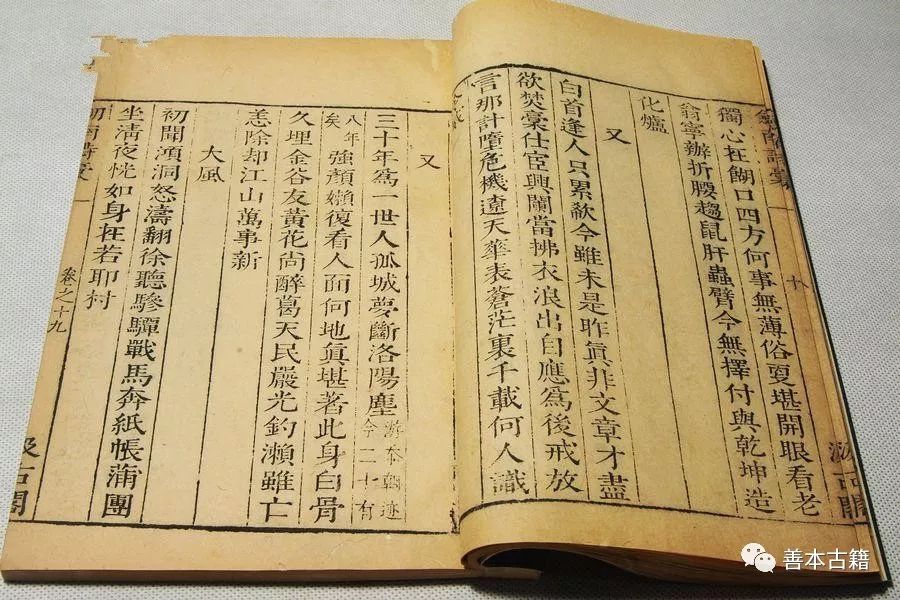 十
汲古閣
獨心在餬口四方何事無薄俗夏堪開眼看老
翁寧辦折腰趨鼠肝蟲臂今無擇付與乾坤造
化爐
又
白首逢人只累欷今雖未是昨眞非文章才盡
欲焚稾仕宦興闌當拂衣浪出自應爲後戒放
言那計墮危機遼天華表蒼茫裏千載何人識
又
三十年爲一世人孤城夢斷洛陽塵今二十有
八年矣強顏嬾復看人面何地眞堪著此身白骨
久埋金谷友黃花尚醉葛天民嚴光釣瀨雖亡
恙除却江山萬事新
大風
初聞澒洞怒濤翻徐聽驂驔戰馬奔紙帳蒲團
坐淸夜恍如身在若耶村
卷之十九
汲古閣
善本古籍